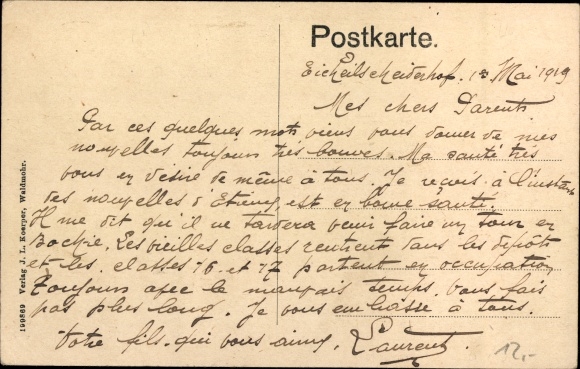 Postkarte.
Eicheilscheiderhof. 1er Mai 1919
Mes chers Parents
Par ces quelques mots viens vous donner de mes
nouvelles toujours très bonnes. Ma santé très
vous en désire de même à tous. Je reçois à l'instant
des nouvelles d'Etienne, est en bonne santé.
Il me dit qu'il ne tardera venir faire un tour en
Bochie. Les vieilles classes rentrent dans les dépots
et les classes 16 et 17 partent en occupation
Toujours avec le mauvais temps. Vous fais
pas plus long. Je vous embrasse à tous.
Votre fils qui vous aime, Laurent
199869 Verlag J. L. Koerper, Waldmohr.
12,-